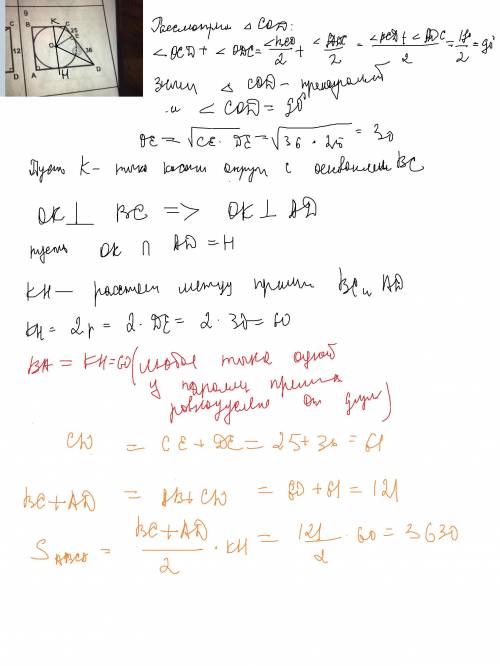 9
K
B C
25
O E
12 36
A H D
D
Рассмотрим △ COD:
∠OCD + ∠ODC = ∠BCD/2 + ∠ADC/2 = (∠BCD + ∠ADC)/2 = 180/2 = 90°
△ COD –
и ∠ COD = 90°
OE = √CE · DE = √36 · 25 = 30
Пусть K – точка касан окружн с основанием BC
OK ⊥ BC => OK ⊥ AD
пусть OK ∩ AD = H
KH – расстоян между прямы BC и AD
KH = 2r = 2 · OE = 2 · 30 = 60
BA = KH = 60 (любая точка одной
у паралл прямы
равноудалена от друг)
CD = CE + DE = 25 + 36 = 61
BC + AD = AB + CD = 60 + 61 = 121
S ABCD = (BC + AD)/2 · KH = 121/2 · 60 = 3630